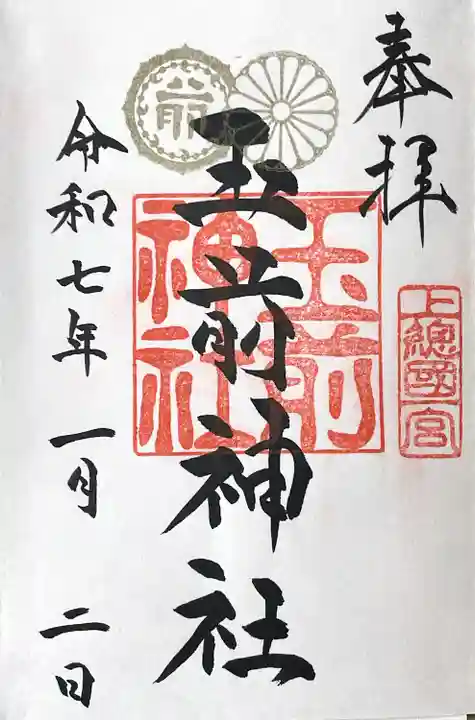 奉拝
上總國一宮
前
玉前神社
玉前神社
令和七年一月二日